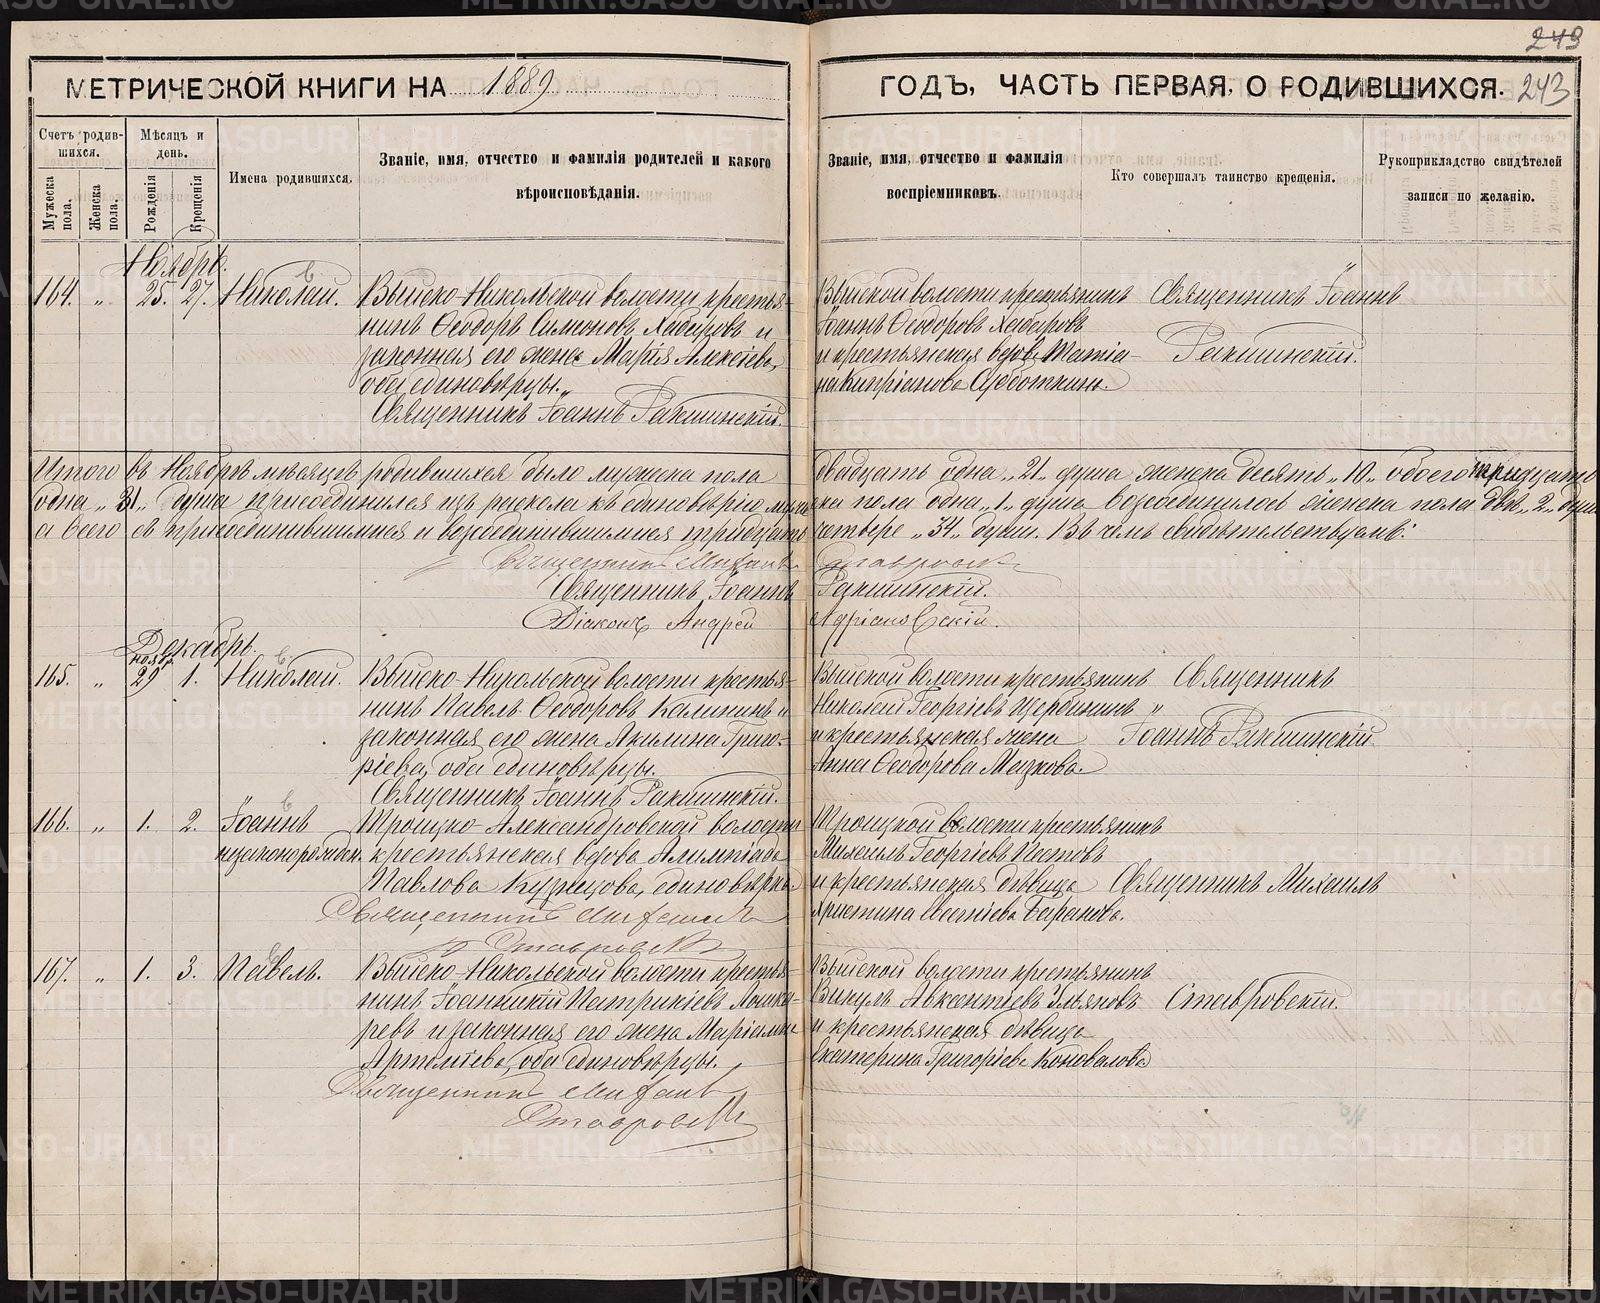 249
МЕТРИЧЕСКОЙ КНИГИ НА 1889
ГОДЪ, ЧАСТЬ ПЕРВАЯ, О РОДИВШИХСЯ. 243
Счетъ родившихся.
Мѣсяцъ и день.
Имена родившихся.
Званіе, имя, отчество и фамилія родителей и какого
вѣроисповѣданія.
Званіе, имя, отчество и фамилія
воспріемниковъ.
Кто совершалъ таинство крещенія.
Рукоприкладство свидѣтелей
записи по желанію.
Мужеска пола.
Женска пола.
Рожденія
Крещенія
Ноябрь.
164. „ 25. 27. Николай. Выйско-Никольской волости крестья-
нинъ Ѳеодоръ Симоновъ Хабаровъ и
законная его жена Марія Алексѣева,
оба единовѣрцы.
Священникъ Іоаннъ Ракшинскій.
Выйской волости крестьянинъ
Іоаннъ Ѳеодоровъ Хабаровъ
и крестьянская вдова Татіа-
на Кипріанова Субботкина.
Священникъ Іоаннъ
Ракшинскій.
Итого въ Ноябрѣ мѣсяцѣ родившихся было мужеска пола двадцать одна „21„ душа женска десять „10„ обоего тридцать
одна „31„ душа присоединился изъ раскола къ единовѣрію мужска пола одна „1„ душа возсоединилось женска пола двѣ „2„ души
а всего съ присоединившимися и возсоединившимися тридцать четыре „34„ души. Въ чемъ свидѣтельствуемъ:
Священникъ Михаилъ Ставровскій
Священникъ Іоаннъ Ракшинскій.
Діаконъ Андрей Адріановскій.
Декабрь.
165. „ нояб. 29 1. Николай. Выйско-Никольской волости крестья-
нинъ Павелъ Ѳеодоровъ Калининъ и
законная его жена Акилина Григо-
ріева, оба единовѣрцы.
Священникъ Іоаннъ Ракшинскій.
Выйской волости крестьянинъ
Николай Георгіевъ Щербининъ
и крестьянская жена
Анна Ѳеодорова Мазкова.
Священникъ
Іоаннъ Ракшинскій
166. „ 1. 2. Іоаннъ
незаконорожден.
Троицко-Александровской волости
крестьянская вдова Алимпіада
Павлова Кузнецова, единовѣрка.
Священникъ Михаилъ
Ставровскій
Троицкой волости крестьянинъ
Михаилъ Георгіевъ Постовъ
и крестьянская дѣвица
Христина Евгеніева Баранова.
Священникъ Михаилъ
167. „ 1. 3. Павелъ. Выйско-Никольской волости крестья-
нинъ Іоанникій Патрикіевъ Мошка-
ревъ и законная его жена Маріамна
Артеміева, оба единовѣрцы.
Священникъ Михаилъ
Ставровскій
Выйской волости крестьянинъ
Викулъ Авксентіевъ Ульяновъ
и крестьянская дѣвица
Екатерина Григоріева Коновалова
Ставровскій.
METRIKI.GASO-URAL.RU